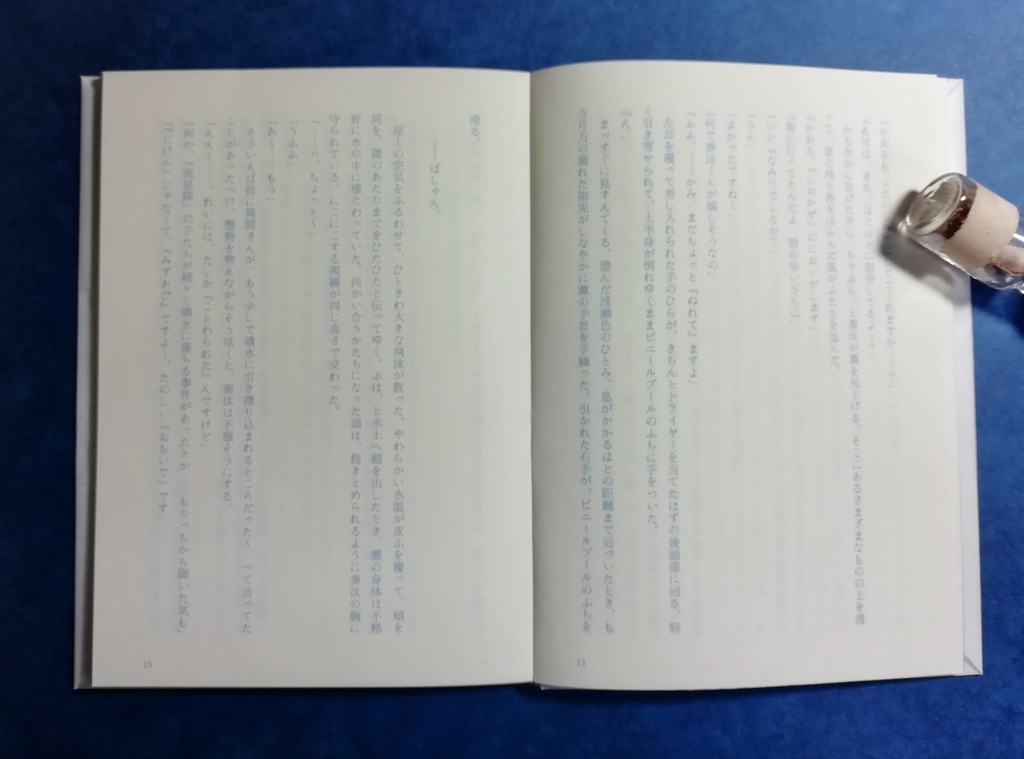 「あはは、まあ、ほどほどに期待してるよ～？」
「かおる、『しおかぜ』のにおいがします」
「海に行ってたんだよ、朝の早いうちに」
「いい『なみ』でしたか？」
「うん」
「よかったですね～」
「何で奏汰くんが嬉しそうなの」
「ふふ、……かみ、まだちょっと『ぬれて』ますよ」
な耳を覆って差し入れられた手のひらが、きちんとドライヤーを当てたはずの後頭部に回る。軽
く引き寄せられて、上半身が倒れゆくままビニールプールのふちに手をついた。
「え、」
まっすぐに見すえてくる、澄んだ浅瀬色のひとみ。息がかかるほどの距離まで近づいたとき、も
う片方の濡れた指先がしなやかに薫の手首を手繰った。引かれた右手が、ビニールプールのふちを
12
滑る。
――ばしゃん。
屋上の空気をふるわせて、ひときわ大きな飛沫が散った。やわらかい水温が皮ふを覆って、頬を
肩を、腿のあたりまでをひたひたと伝ってゆく。ぷは、と水上へ顔を出したとき、薫の身体は不格
好に水の中に横たわっていた。向かい合うかたちになった頭は、抱きとめられるように奏汰の腕に
守られている。にこにこする視線が同じ高さで交わった。
「……っ、ちょっとぅ」
「うふふ」
「あ～……もう」
そういえば前に羽風さんが、もう少しで噴水に引き摺り込まれるところだった～、って言ってた
ことがあったっけ。態勢を整えながらそう呟くと、奏汰は不服そうにする。
「ええ～……、れいには、たしか『ことわられた』んですけど」
「何か、『流星隊』の子たちが続々と噴水に落ちる事件があったとか……もりっちから聞いた気も」
「『じけん』じゃなくて、『みずあび』ですよ～。たのしい『おもいで』です」
13